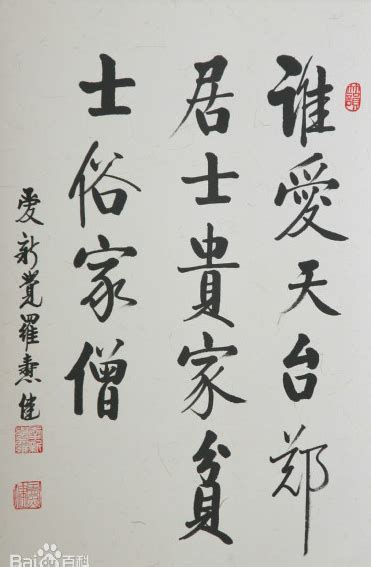 誰愛天台郑
居士貴家貧
士俗家僧
爱新覺羅燾佳
Baidu百科